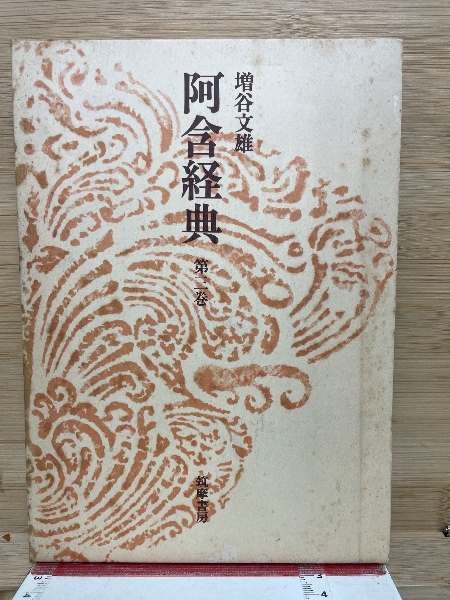 増谷文雄
阿含経典
第二巻
筑摩書房
3
3
4